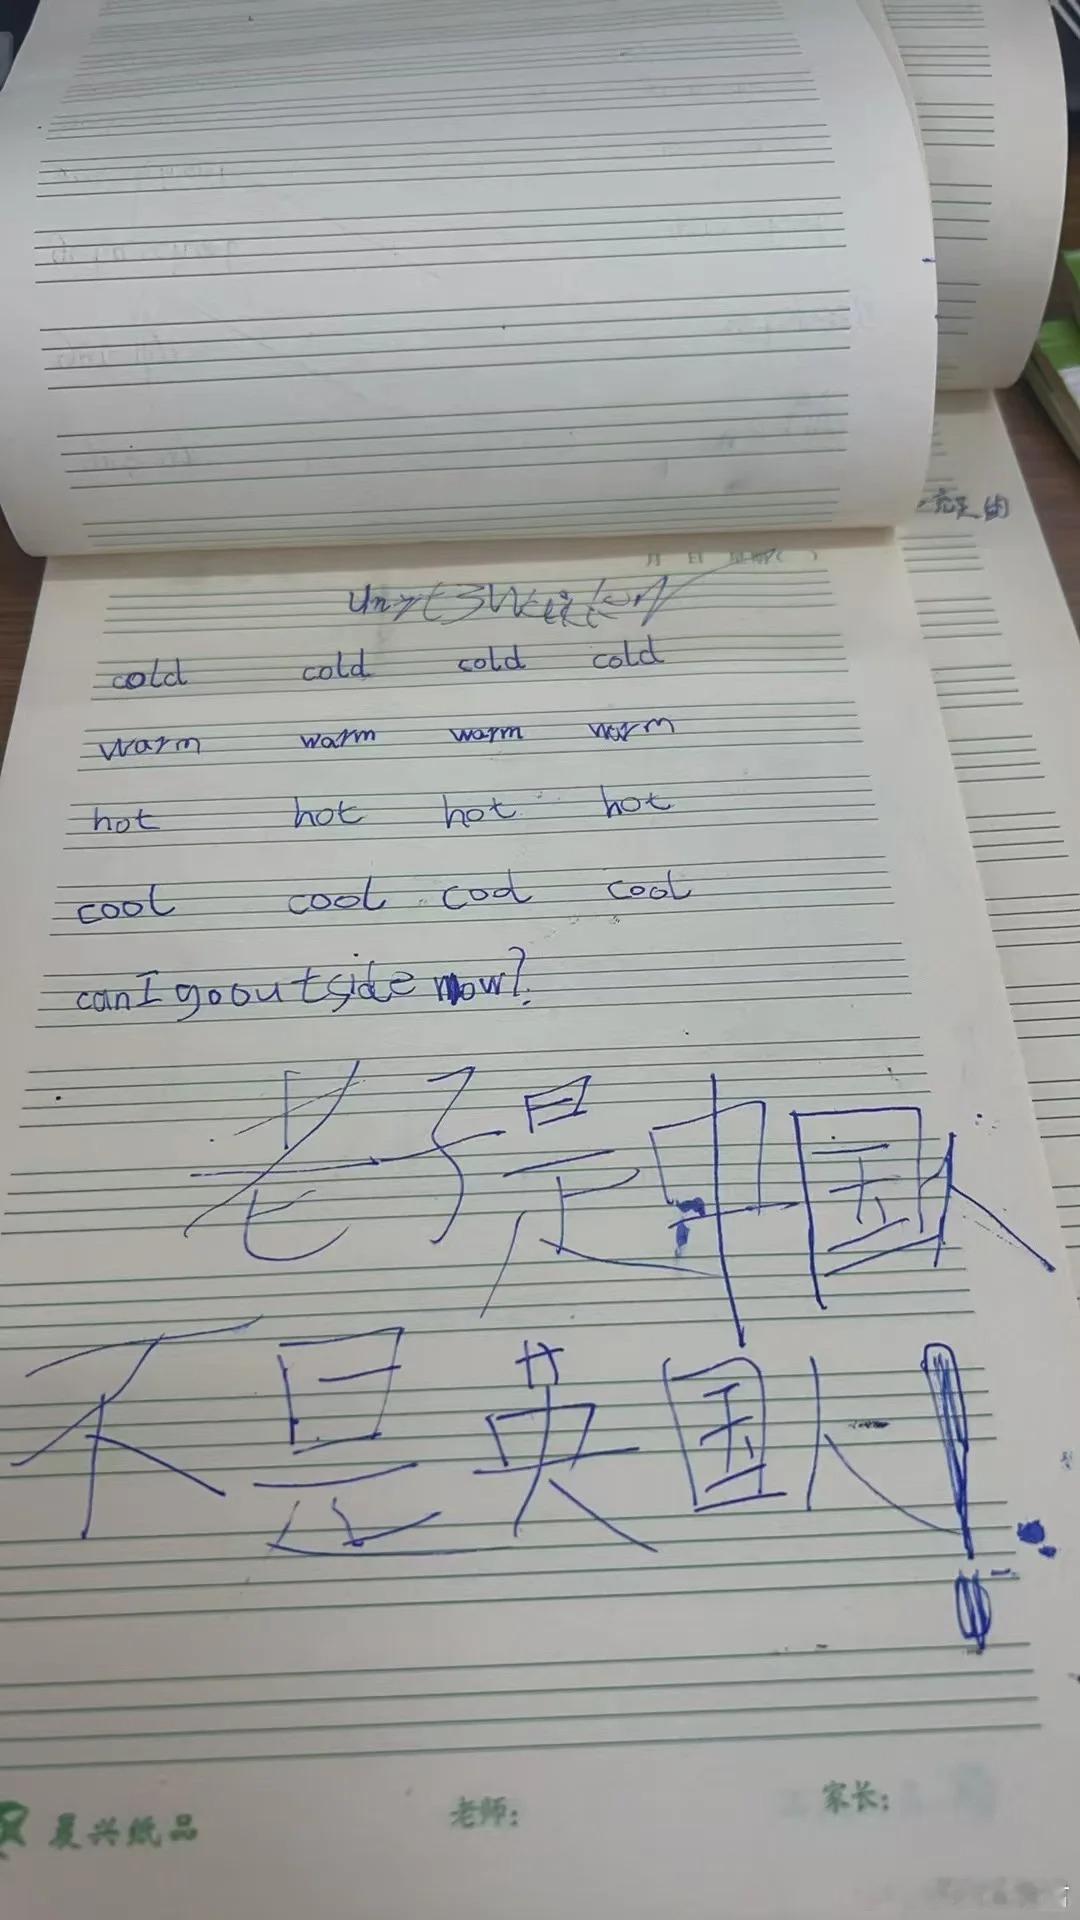 充足的
月 日 星期( )
Unit3Weather
cold cold cold cold
warm warm warm warm
hot hot hot hot
cool cool cool cool
can I go outside now?
老子是中国人
不是英国人!
晨兴纸品 老师: 家长: